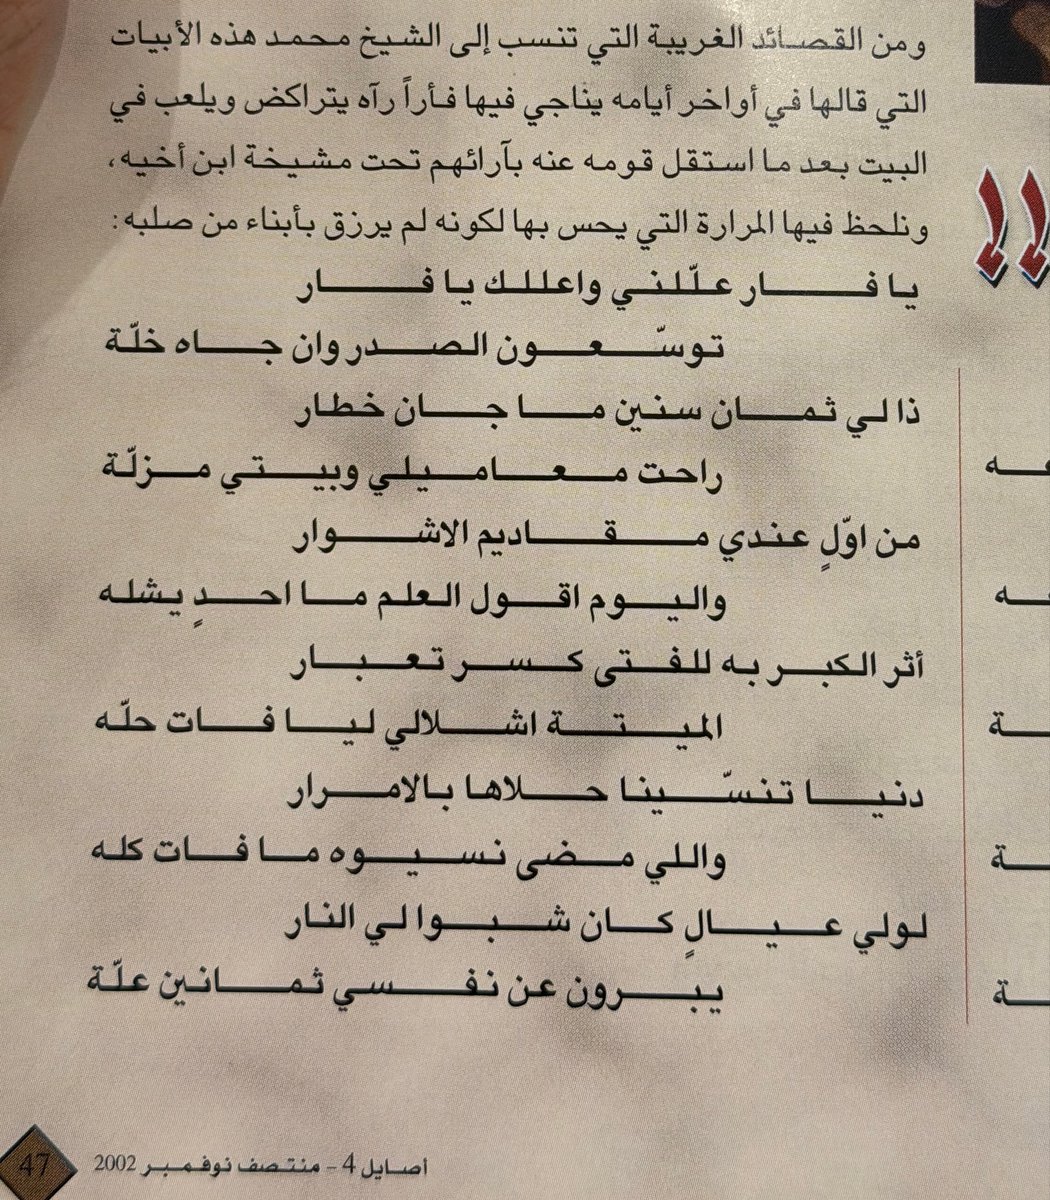 ومن القصائد الغريبة التي تنسب إلى الشيخ محمد هذه الأبيات
التي قالها في أواخر أيامه يناجي فيها فأراً رآه يتراكض ويلعب في
البيت بعد ما استقل قومه عنه بآرائهم تحت مشيخة ابن أخيه،
ونلحظ فيها المرارة التي يحس بها لكونه لم يرزق بأبناء من صلبه:
يا فار علّلني واعللك يا فار
توسّعون الصدر وان جاه خلّة
ذا لي ثمان سنين ما جان خطار
راحت معاميلي وبيتي مزلّة
من اوّلٍ عندي مقاديم الاشوار
واليوم اقول العلم ما احدٍ يشله
أثر الكبر به للفتى كسر تعبار
الميتة اشلالي ليا فات حلّه
دنيا تنسّينا حلاها بالامرار
واللي مضى نسيوه ما فات كله
لولي عيالٍ كان شبوا لي النار
يبرون عن نفسي ثمانين علّة
أصايل 4 - منتصف نوفمبر 2002
47